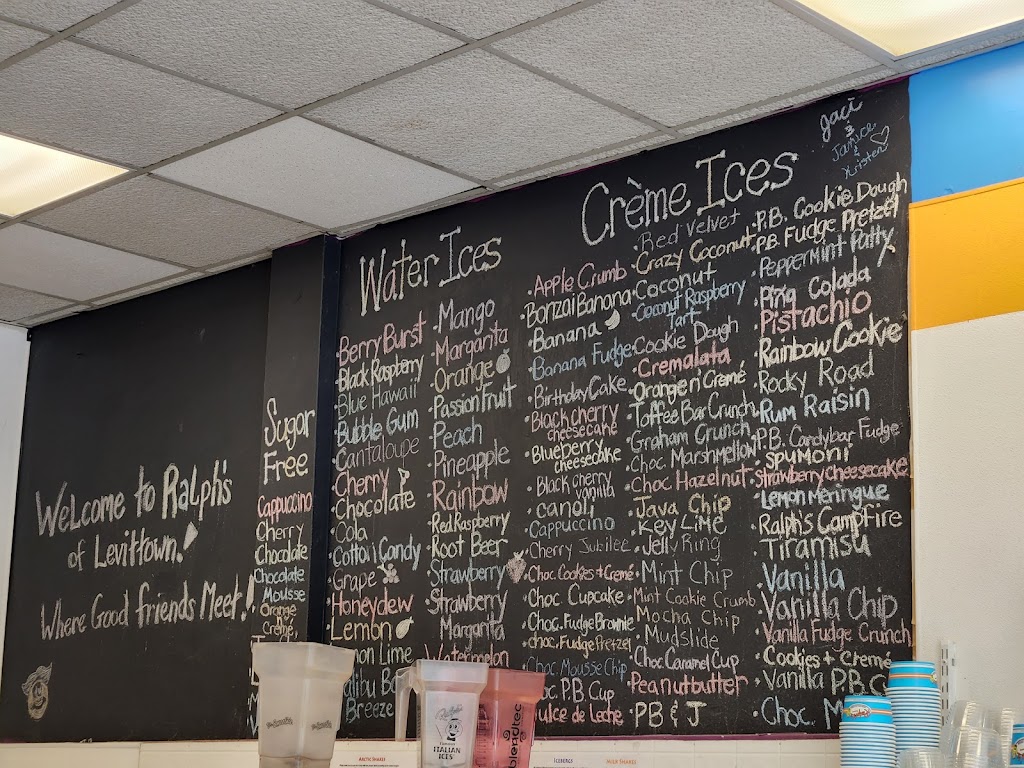 Welcome to Ralph's
of Levittown.
Where Good friends Meet!
Sugar
Free
Cappuccino
Cherry
Chocolate
Chocolate
Mousse
Orange
n'
Creme
Water Ices
·Berry Burst
·Black Raspberry
·Blue Hawaii
·Bubble Gum
·Cantaloupe
·Cherry
·Chocolate
·Cola
·Cotton Candy
·Grape
·Honeydew
·Lemon
Lime
Breeze
·Mango
·Margarita
·Orange
·Passion Fruit
·Peach
·Pineapple
·Rainbow
·Red Raspberry
·Root Beer
·Strawberry
·Strawberry
Margarita
·Watermelon
Crème Ices
·Apple Crumb
·Bonzai Banana
·Banana
·Banana Fudge
·Birthday Cake
·Black cherry
cheesecake
·Blueberry
cheesecake
·Black cherry
vanilla
·canoli
·Cappuccino
·Cherry Jubilee
·Choc. Cookies + Creme
·Choc. Cupcake
·Choc. Fudge Brownie
·choc. Fudge Pretzel
·Choc Mousse Chip
P.B. Cup
Dulce de Leche
·Red Velvet
·Crazy Coconut
·Coconut
·Coconut Raspberry
Tart
·Cookie Dough
·Cremalata
·Orange n' Creme
·Toffee Bar Crunch
·Graham Crunch
·Choc Marshmellow
·Choc Hazelnut
·Java Chip
·Key Lime
·Jelly Ring
·Mint Chip
·Mint Cookie Crumb
·Mocha Chip
·Mudslide
·Choc Caramel Cup
·Peanutbutter
·PB & J
·P.B. Cookie Dough
·P.B. Fudge Pretzel
·Peppermint Patty
·Pina Colada
·Pistachio
·Rainbow Cookie
·Rocky Road
·Rum Raisin
·P.B. Candybar Fudge
·Spumoni
·Strawberry cheesecake
·Lemon Meringue
·Ralph's Campfire
·Tiramisu
·Vanilla
·Vanilla Chip
·Vanilla Fudge Crunch
·Cookies + Creme
·Vanilla P.B.
·Choc.
Jaci
&
Janice
&
Kristen
ITALIAN
ICES
blendtec
ARCTIC SHAKES
ICEBERGS
MILK SHAKES